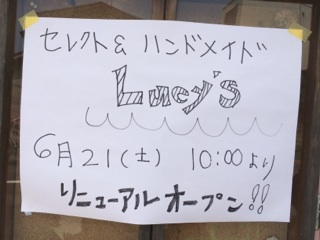 セレクト& ハンドメイド
Lucy's
6月21(土) 10:00より
リニューアルオープン!!